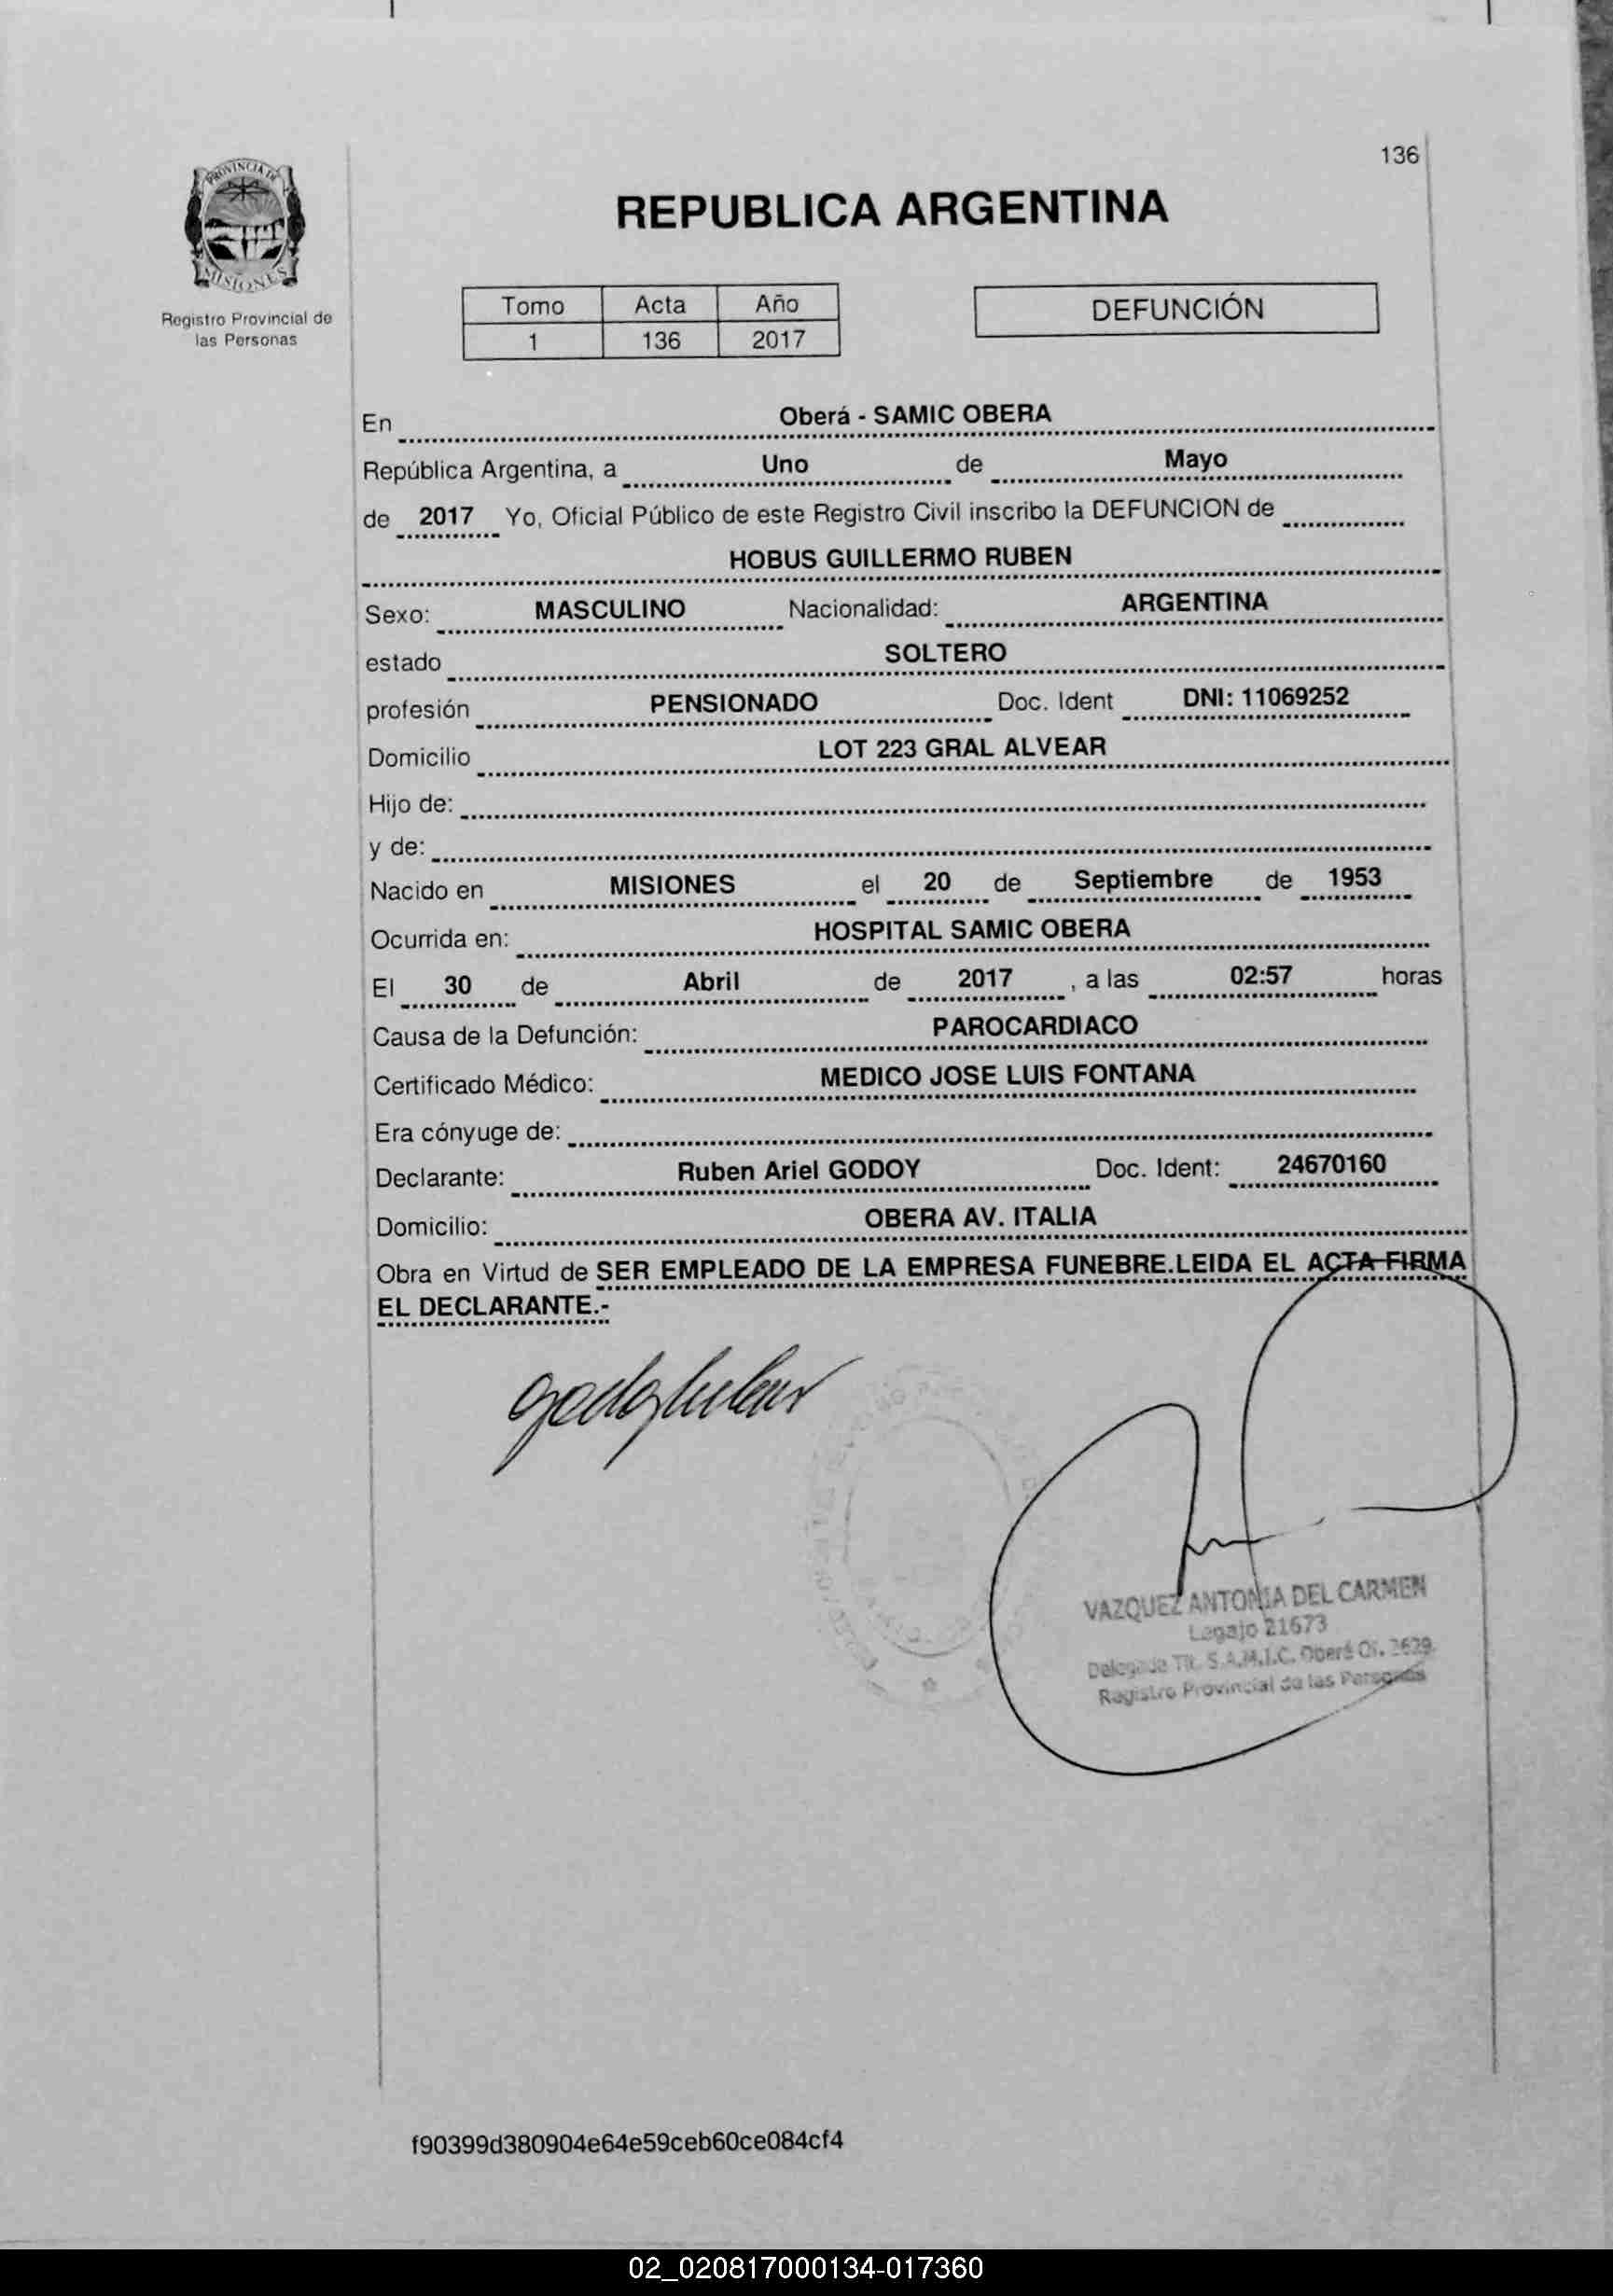 136
PROVINCIA DE
MISIONES
Registro Provincial de
las Personas
REPUBLICA ARGENTINA
Tomo Acta Año
1 136 2017
DEFUNCIÓN
En Oberá - SAMIC OBERA
República Argentina, a Uno de Mayo
de 2017 Yo, Oficial Público de este Registro Civil inscribo la DEFUNCION de
HOBUS GUILLERMO RUBEN
Sexo: MASCULINO Nacionalidad: ARGENTINA
estado SOLTERO
profesión PENSIONADO Doc. Ident DNI: 11069252
Domicilio LOT 223 GRAL ALVEAR
Hijo de:
y de:
Nacido en MISIONES el 20 de Septiembre de 1953
Ocurrida en: HOSPITAL SAMIC OBERA
El 30 de Abril de 2017 , a las 02:57 horas
Causa de la Defunción: PAROCARDIACO
Certificado Médico: MEDICO JOSE LUIS FONTANA
Era cónyuge de:
Declarante: Ruben Ariel GODOY Doc. Ident: 24670160
Domicilio: OBERA AV. ITALIA
Obra en Virtud de SER EMPLEADO DE LA EMPRESA FUNEBRE.LEIDA EL ACTA FIRMA
EL DECLARANTE.-
VAZQUEZ ANTONIA DEL CARMEN
Legajo 21673
S.A.M.I.C. Oberá
Registro Provincial de las Personas
f90399d380904e64e59ceb60ce084cf4
02_020817000134-017360